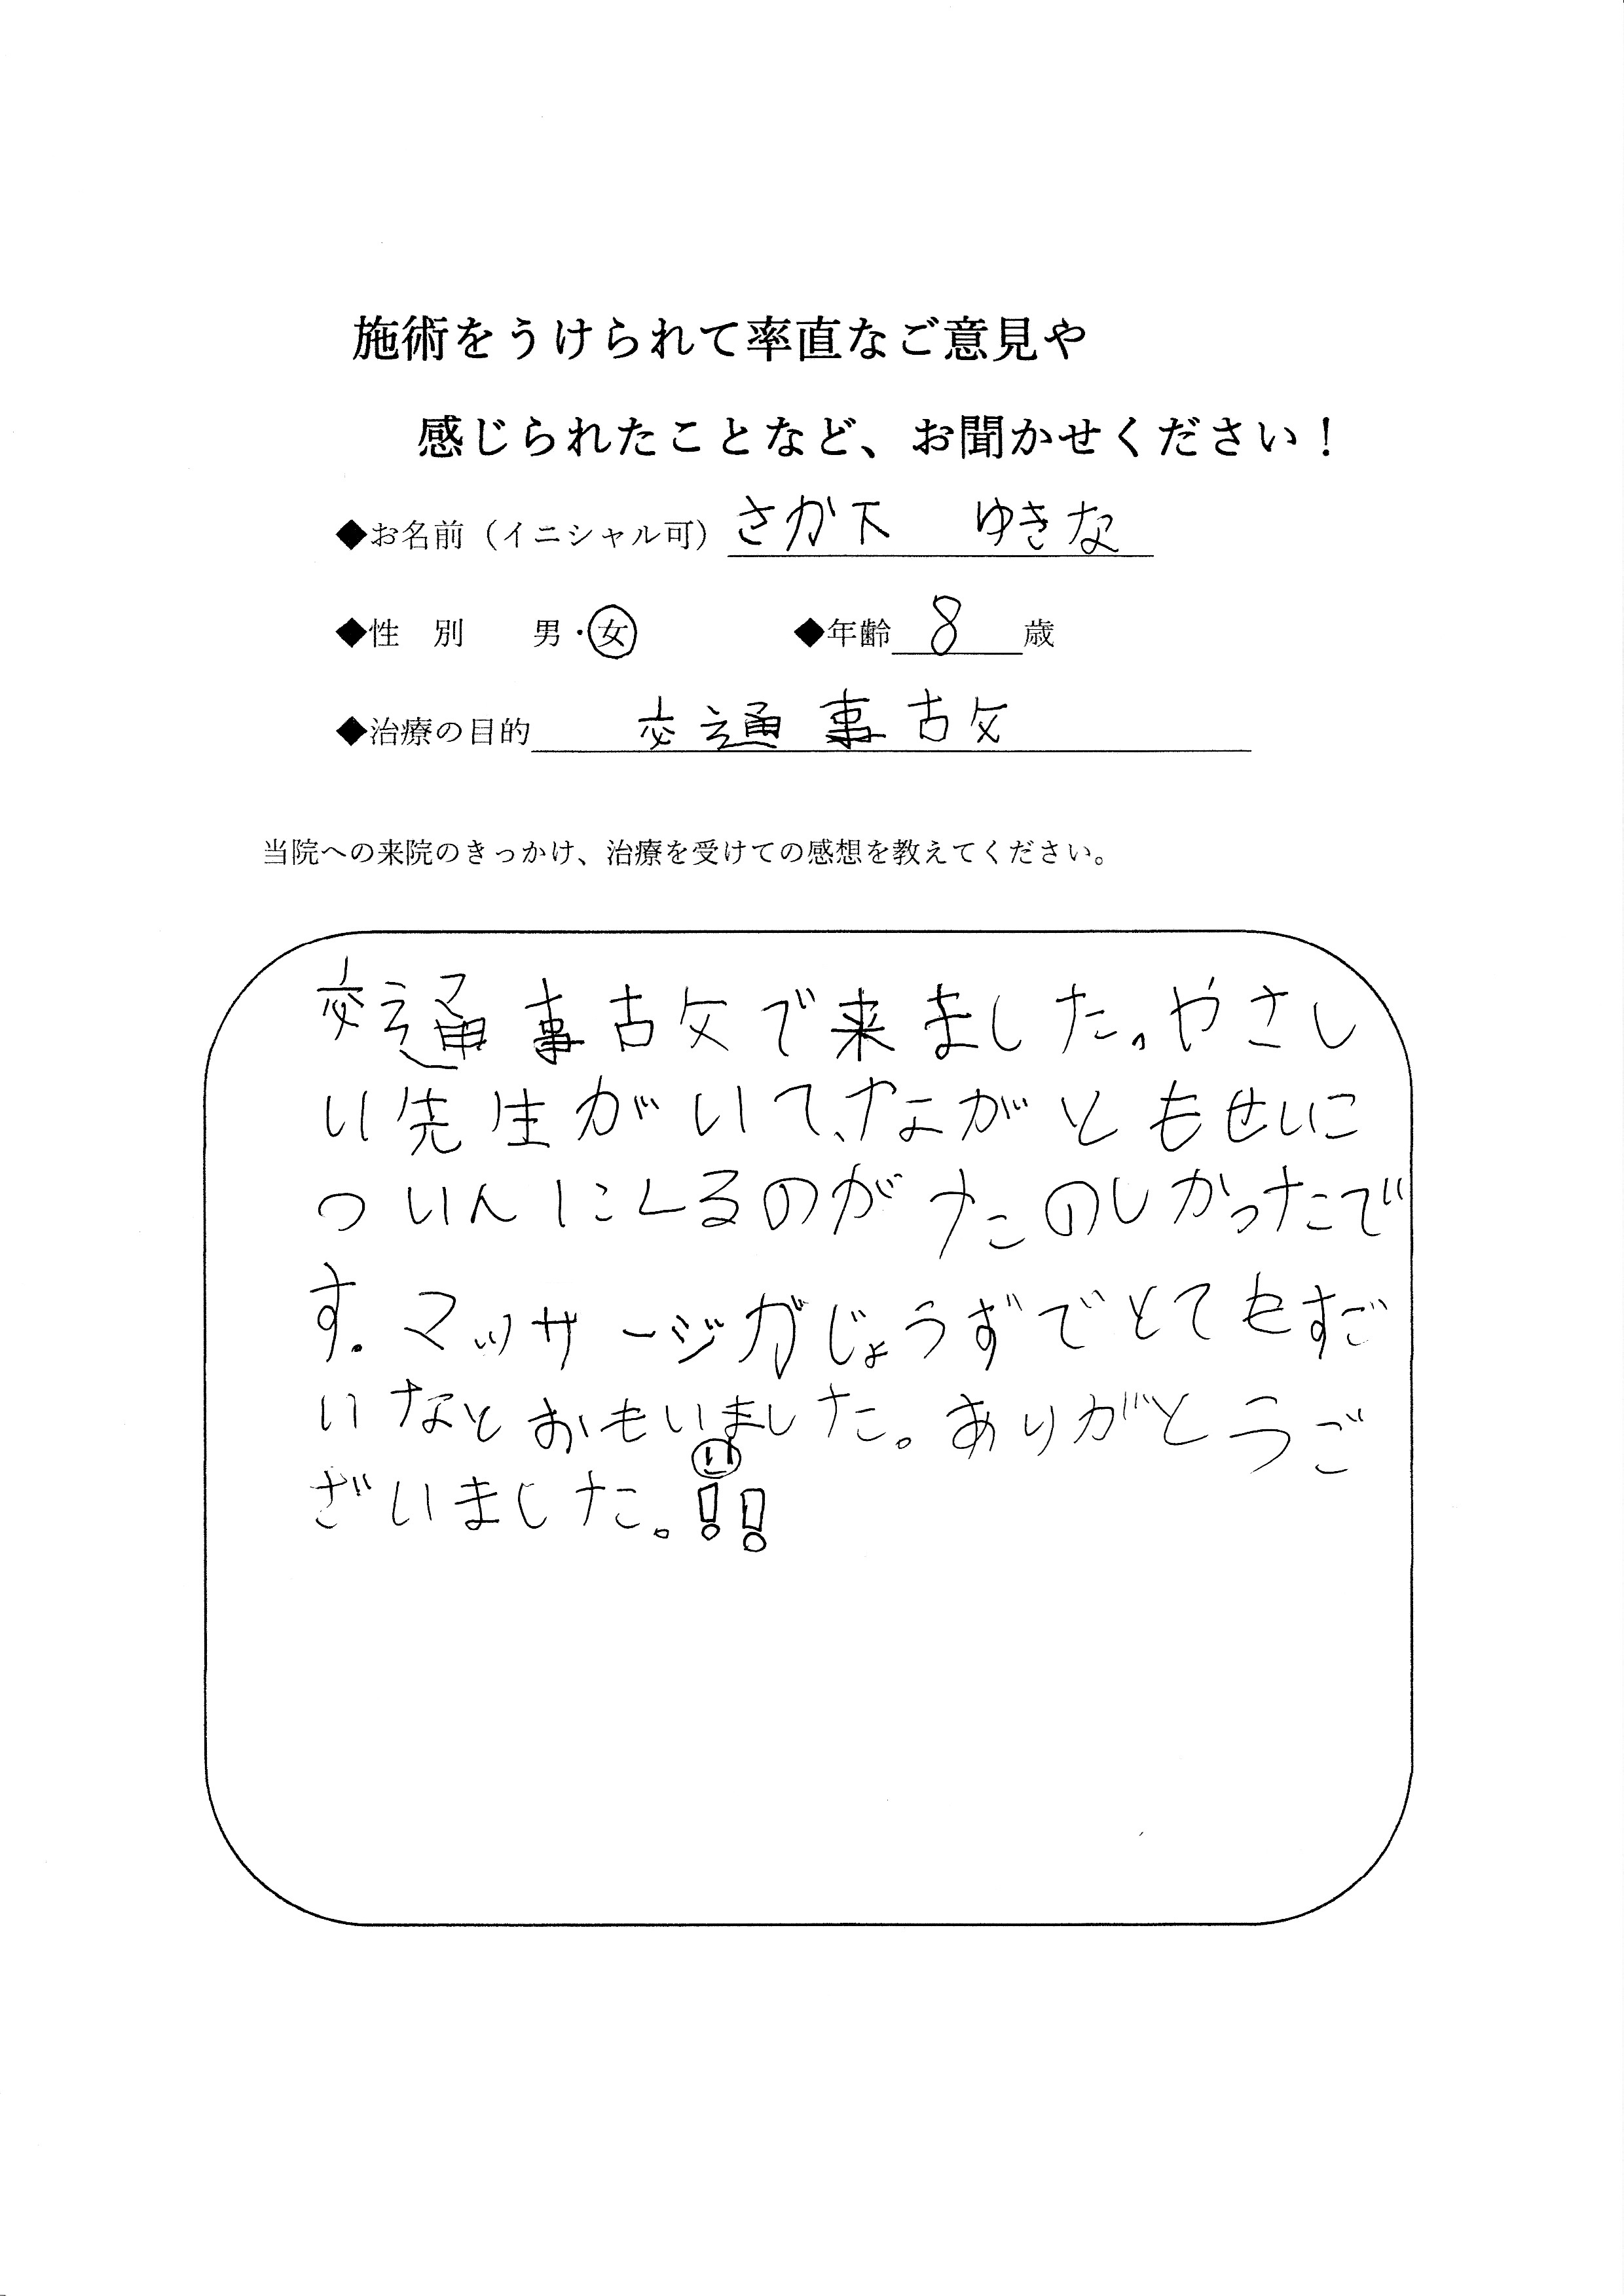 施術をうけられて率直なご意見や
感じられたことなど、お聞かせください！
◆お名前（イニシャル可） さか下 ゆきな
◆性 別 男・女 ◆年齢 8 歳
◆治療の目的 交通事古攵
当院への来院のきっかけ、治療を受けての感想を教えてください。
交通事古攵で来ました。やさし
い先生がいて、ながともせいに
ついんにくるのがたのしかったで
す。マッサージがじょうずでとてもすご
いなとおもいました。ありがとうご
ざいました。!!